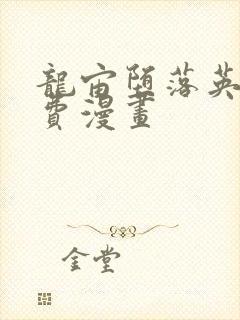 龍宙堕落英
費漫畫
金堂